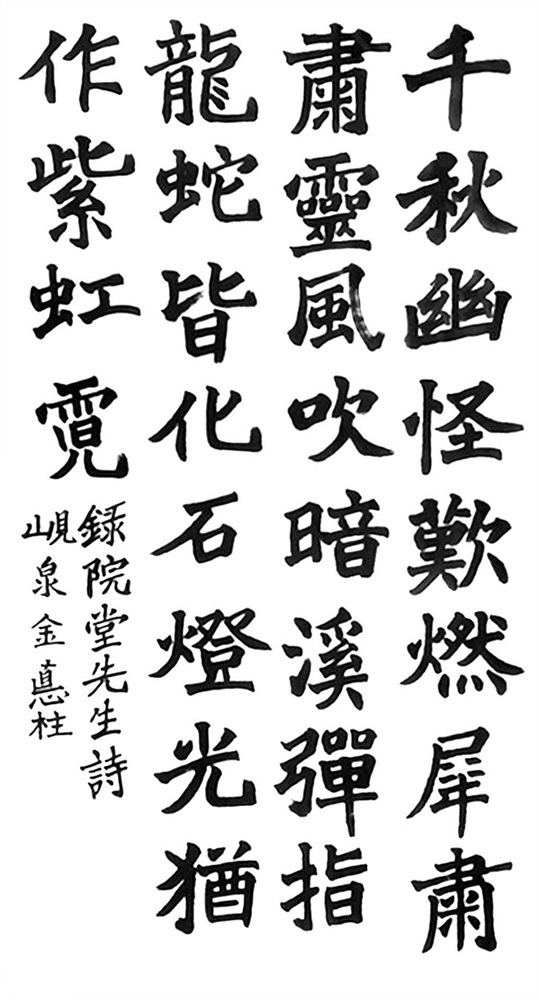 千秋幽怪歎燃犀肅
肅靈風吹暗溪彈指
龍蛇皆化石燈光猶
作紫虹霓
錄院堂先生詩
峴泉金悳柱